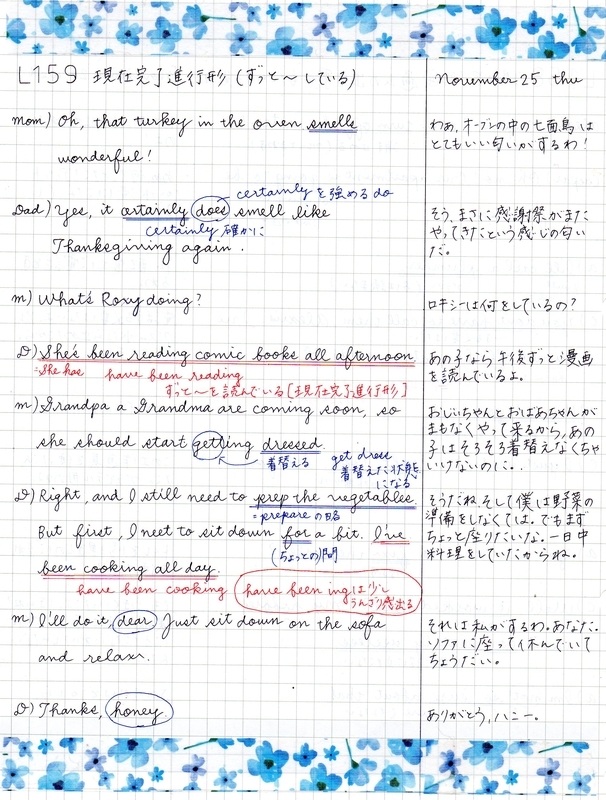 L159 現在完了進行形 (ずっと〜している)
November 25 thu
mom) Oh, that turkey in the oven smells
wonderful!
わぁ、オーブンの中の七面鳥は
とてもいい匂いがするわ!
certainlyを強める do
Dad) Yes, it certainly does smell like
certainly 確かに
Thanksgiving again.
そう、まさに感謝祭がまた
やってきたという感じの匂い
だ。
m) What's Roxy doing?
ロキシーは何をしているの?
D) She's been reading comic books all afternoon
=She has have been reading
ずっと〜を読んでいる [現在完了進行形]
あの子なら午後ずっと漫画
を読んでいるよ。
m) Grandpa a Grandma are coming soon, so
she should start getting dressed.
着替える
get dress
着替えた状態
になる
おじいちゃんとおばあちゃんが
まもなくやって来るから、あの
子はそろそろ着替えなくちゃ
いけないのに..
D) Right, and I still need to prep the vegetables.
=prepare の略
But first, I neet to sit down for a bit. I've
(ちょっとの)間
been cooking all day.
have been cooking
have been ingは少し
うんざり感出る
そうだね、そして僕は野菜の
準備をしなくては。でもまず
ちょっと座りたいな。一日中
料理をしていたからね。
m) I'll do it, dear. Just sit down on the sofa
and relax.
それは私がするわ。あなた.
ソファに座って休んでいて
ちょうだい。
D) Thanks, honey.
ありがとう、ハニー。